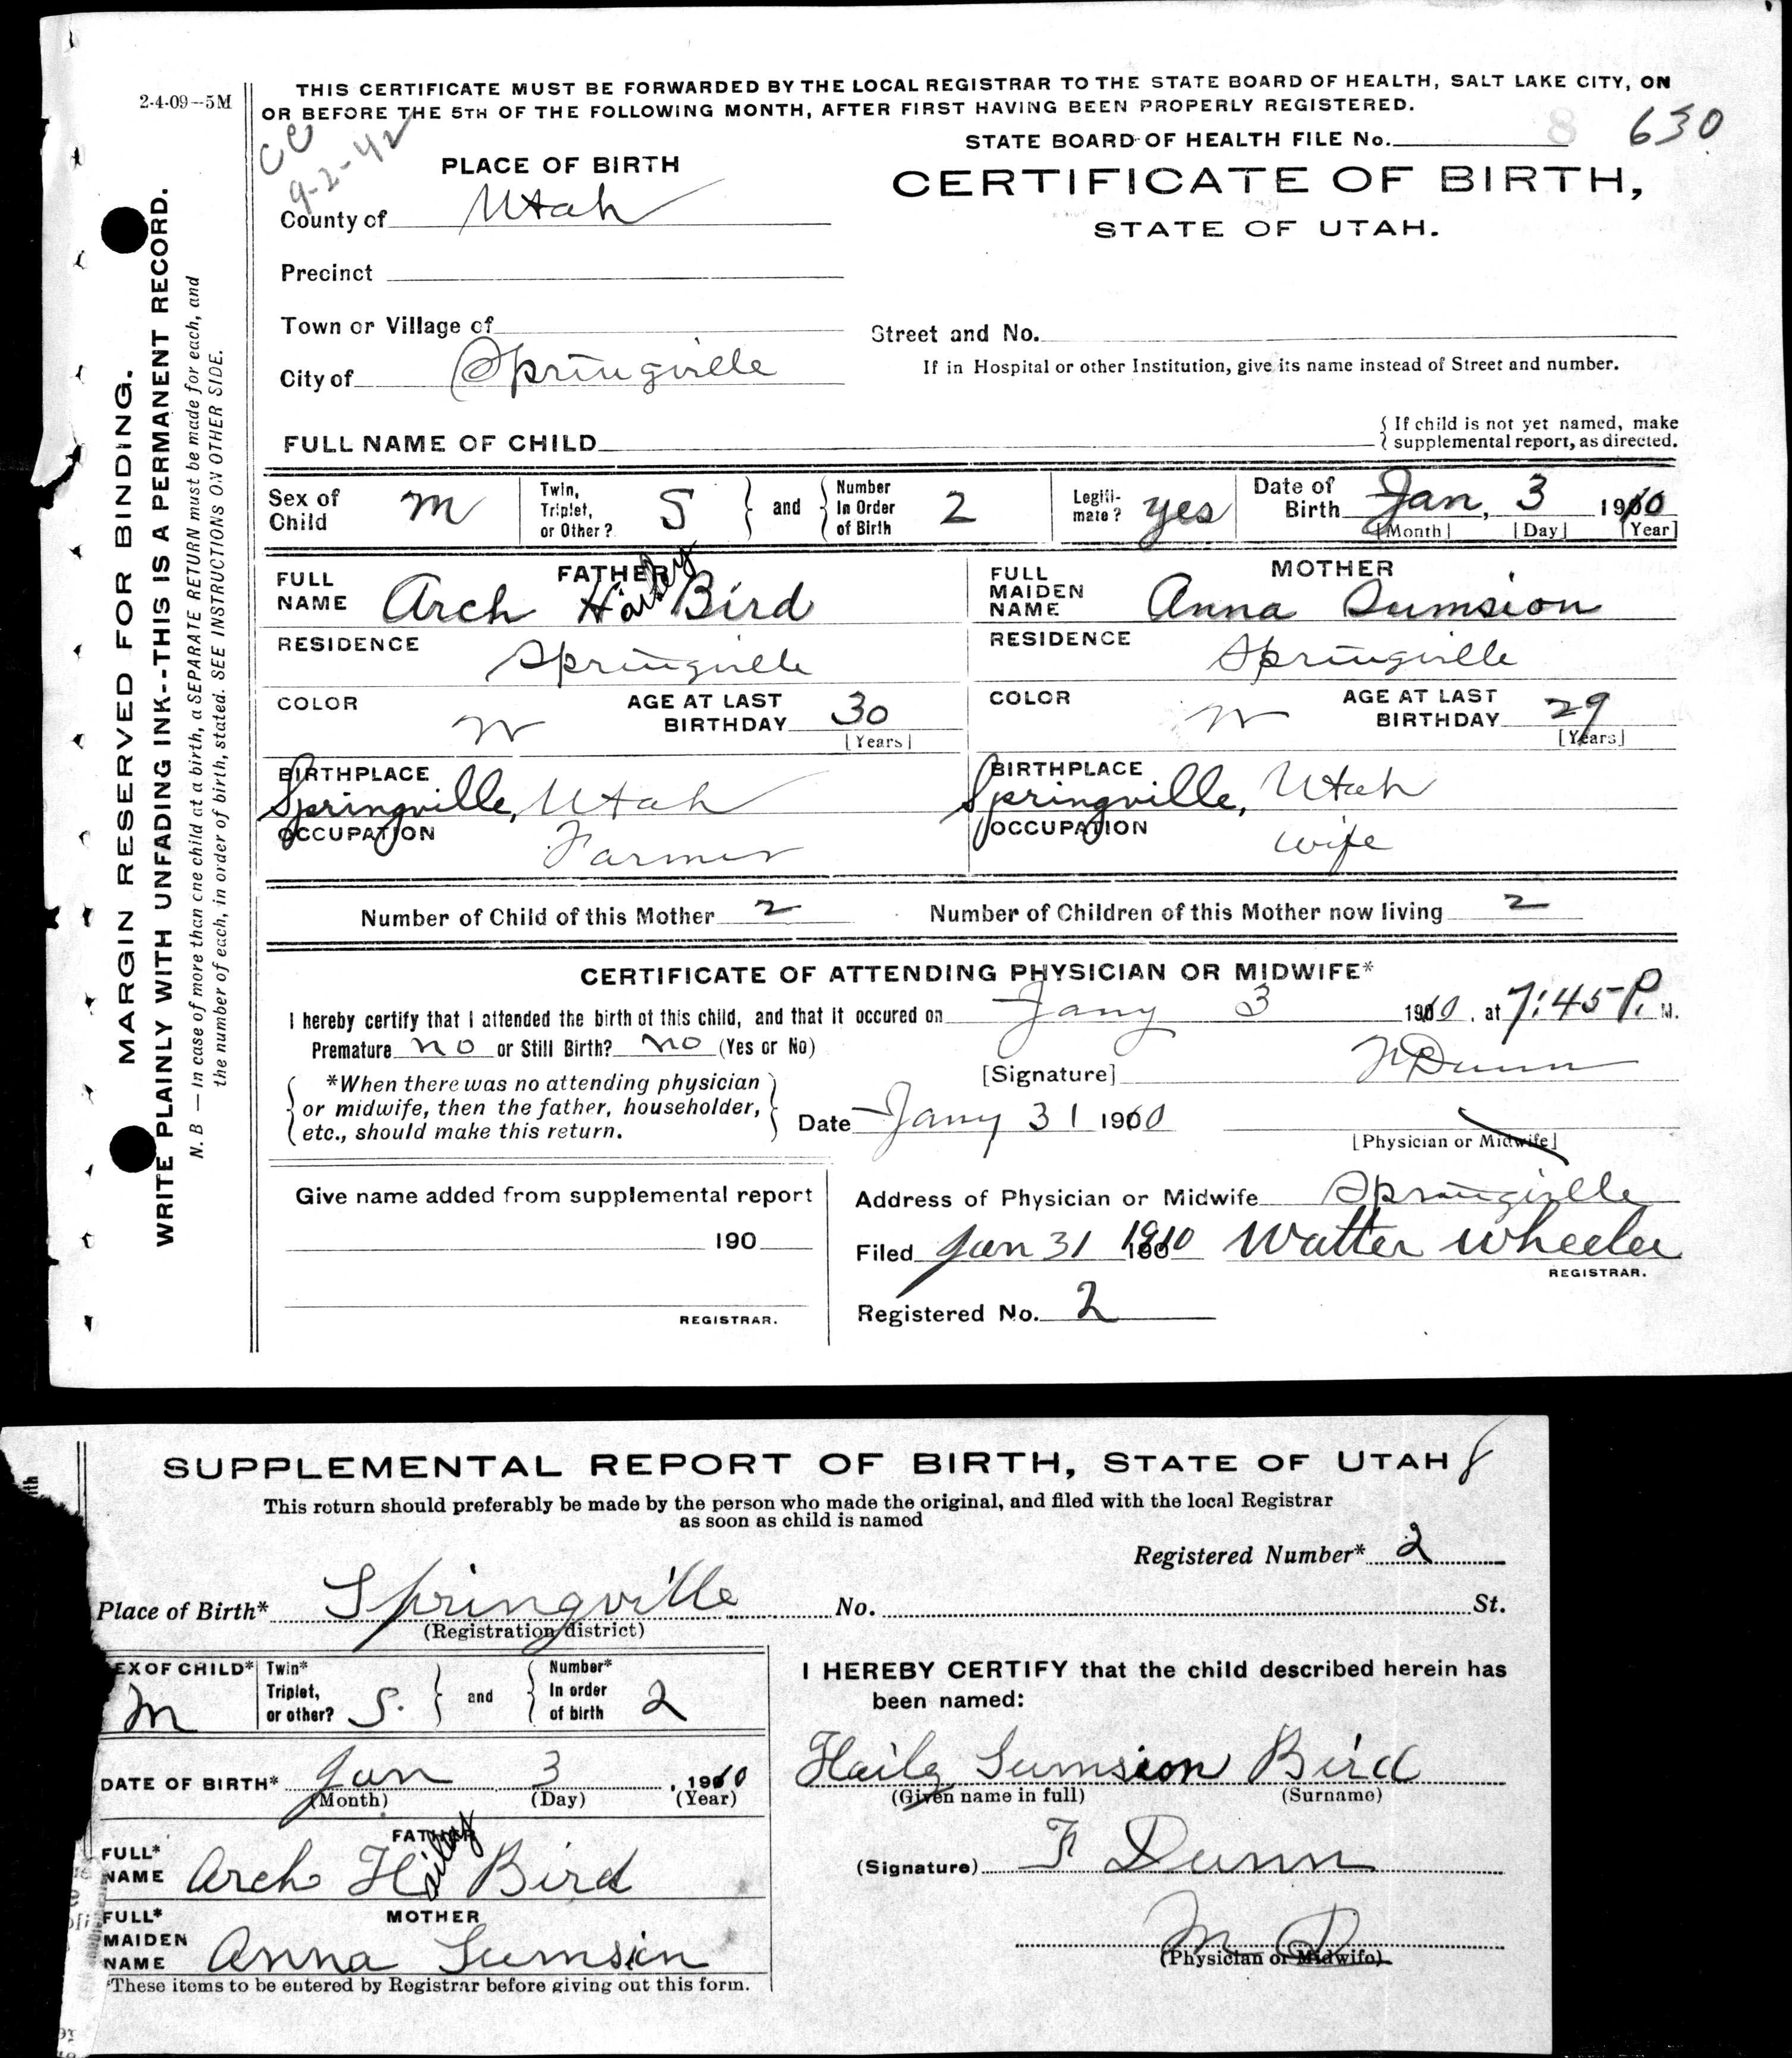 2-4-09--5M
THIS CERTIFICATE MUST BE FORWARDED BY THE LOCAL REGISTRAR TO THE STATE BOARD OF HEALTH, SALT LAKE CITY, ON
OR BEFORE THE 5TH OF THE FOLLOWING MONTH, AFTER FIRST HAVING BEEN PROPERLY REGISTERED.
CC
9-2-42
STATE BOARD OF HEALTH FILE No. 8 630
PLACE OF BIRTH
CERTIFICATE OF BIRTH,
STATE OF UTAH.
County of Utah
Precinct
Town or Village of
Street and No.
City of Springville
If in Hospital or other Institution, give its name instead of Street and number.
FULL NAME OF CHILD
If child is not yet named, make
supplemental report, as directed.
Sex of Child m
Twin, Triplet, or Other? S and Number In Order of Birth 2
Legiti-mate? yes
Date of Birth Jan, 3 1910
[Month] [Day] [Year]
FATHER
FULL NAME Arch Hailey Bird
MOTHER
FULL MAIDEN NAME Anna Sumsion
RESIDENCE Springville
RESIDENCE Springville
COLOR W AGE AT LAST BIRTHDAY 30 [Years]
COLOR W AGE AT LAST BIRTHDAY 29 [Years]
BIRTHPLACE Springville, Utah
BIRTHPLACE Springville, Utah
OCCUPATION Farmer
OCCUPATION wife
Number of Child of this Mother 2 Number of Children of this Mother now living 2
CERTIFICATE OF ATTENDING PHYSICIAN OR MIDWIFE*
I hereby certify that I attended the birth of this child, and that it occured on Jany 3 1910, at 7:45 P. M.
Premature no or Still Birth? no (Yes or No)
[Signature] F Dunn
*When there was no attending physician
or midwife, then the father, householder,
etc., should make this return.
Date Jany 31 1910
[Physician or Midwife]
Give name added from supplemental report
190
REGISTRAR.
Address of Physician or Midwife Springville
Filed Jan 31 1910 Walter Wheeler
REGISTRAR.
Registered No. 2
MARGIN RESERVED FOR BINDING.
WRITE PLAINLY WITH UNFADING INK--THIS IS A PERMANENT RECORD.
N. B — In case of more than one child at a birth, a SEPARATE RETURN must be made for each, and
the number of each, in order of birth, stated. SEE INSTRUCTIONS ON OTHER SIDE.
SUPPLEMENTAL REPORT OF BIRTH, STATE OF UTAH 8
This return should preferably be made by the person who made the original, and filed with the local Registrar
as soon as child is named
Registered Number* 2
Place of Birth* Springville No. St.
(Registration district)
EX OF CHILD* m
Twin* Triplet, or other? S. and Number* In order of birth 2
DATE OF BIRTH* Jan 3, 1910
(Month) (Day) (Year)
FATHER
FULL* NAME Arch Hailey Bird
MOTHER
FULL* MAIDEN NAME Anna Sumsin
*These items to be entered by Registrar before giving out this form.
I HEREBY CERTIFY that the child described herein has
been named:
Haily Sumsion Bird
(Given name in full) (Surname)
(Signature) F Dunn
M D
(Physician or Midwife)